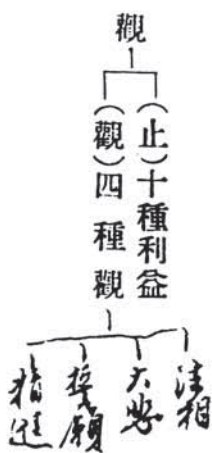 觀
（止）十種利益
（觀）四種觀
法相
大悲
誓願
精進